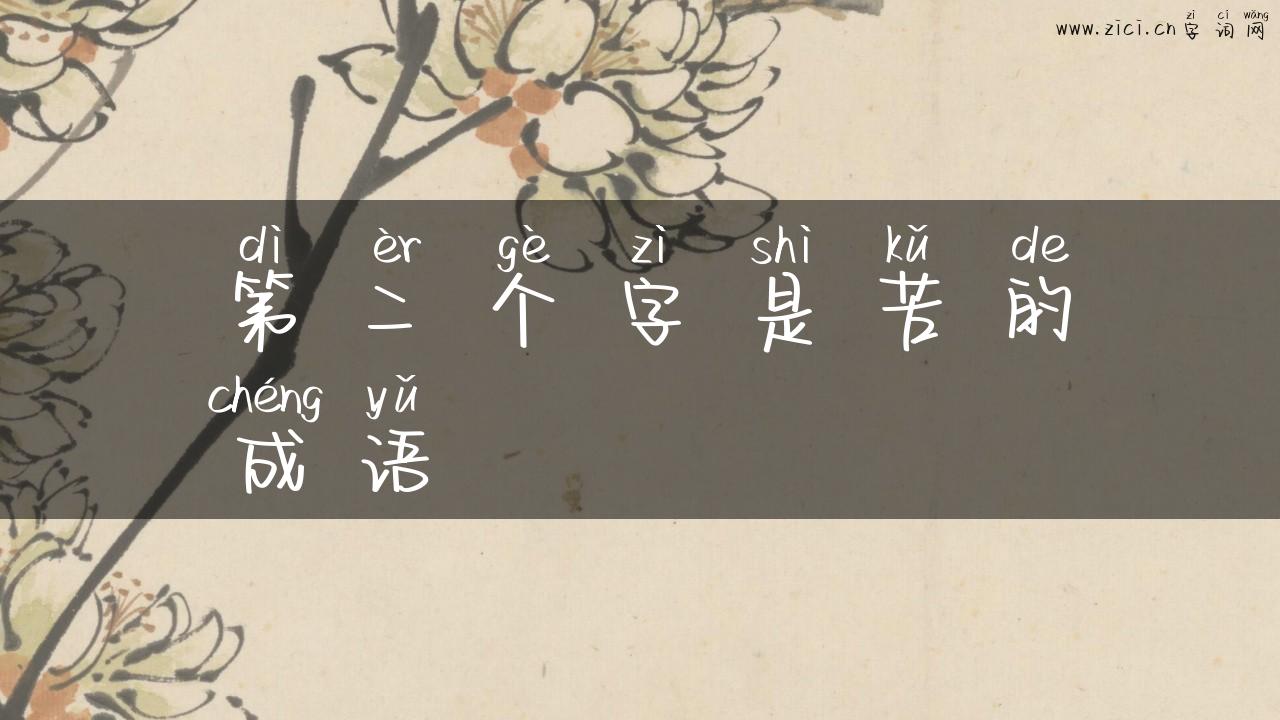 zì cí wǎng
www.zici.cn 字词网
dì èr gè zì shì kǔ de
第二个字是苦的
chéng yǔ
成语